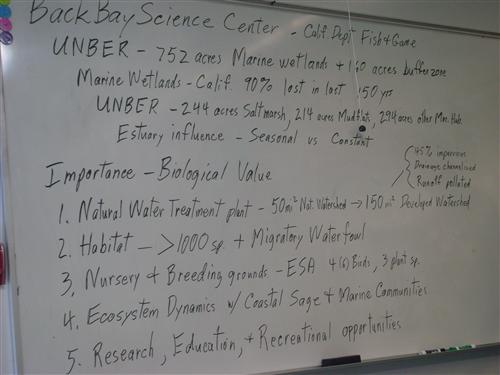 Back Bay Science Center - Calif. Dept Fish & Game
UNBER - 752 acres Marine wetlands + 140 acres buffer zone
Marine Wetlands - Calif. 90% lost in last 150 yrs
UNBER - 244 acres Saltmarsh, 214 acres Mudflats, 294 acres other Mar. Hab.
Estuary influence - Seasonal vs Constant
Importance - Biological Value
45% impervious
Drainage channelized
Runoff polluted
1. Natural Water Treatment plant - 50mi² Nat. Watershed → 150mi² Developed Watershed
2. Habitat - >1000 sp. + Migratory Waterfowl
3. Nursery & Breeding grounds - ESA 4(6) Birds, 3 plant sp.
4. Ecosystem Dynamics w/ Coastal Sage & Marine Communities
5. Research, Education, + Recreational opportunities